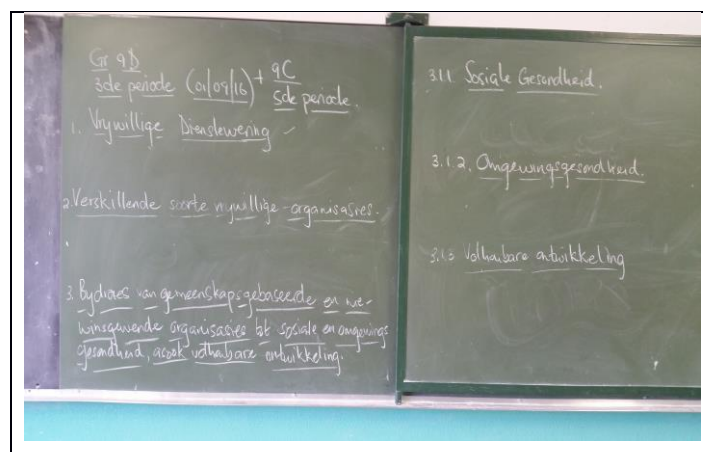 Gr 9D
3de periode (01/09/16) + 9C
5de periode.
1. Vrywillige Dienslewering
2. Verskillende soorte vrywillige-organisasies.
3. Bydraes van gemeenskapsgebaseerde en nie-
winsgewende organisasies tot sosiale en omgewings
gesondheid, asook volhoubare ontwikkeling.
3.1.1. Sosiale Gesondheid.
3.1.2. Omgewingsgesondheid.
3.1.3 Volhoubare ontwikkeling